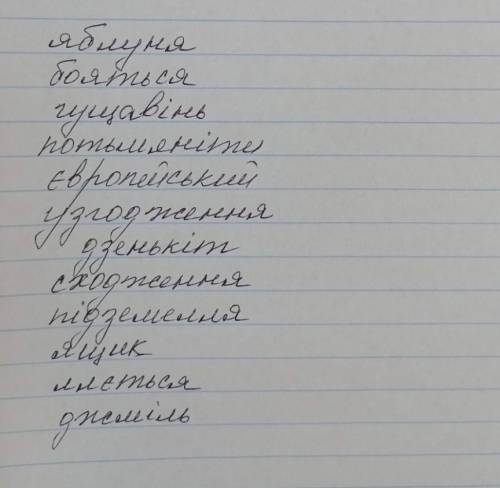 яблуня
бояться
гущавінь
потьмяніти
європейський
узгодження
дзенькіт
сходження
підземелля
ящик
ллється
джміль